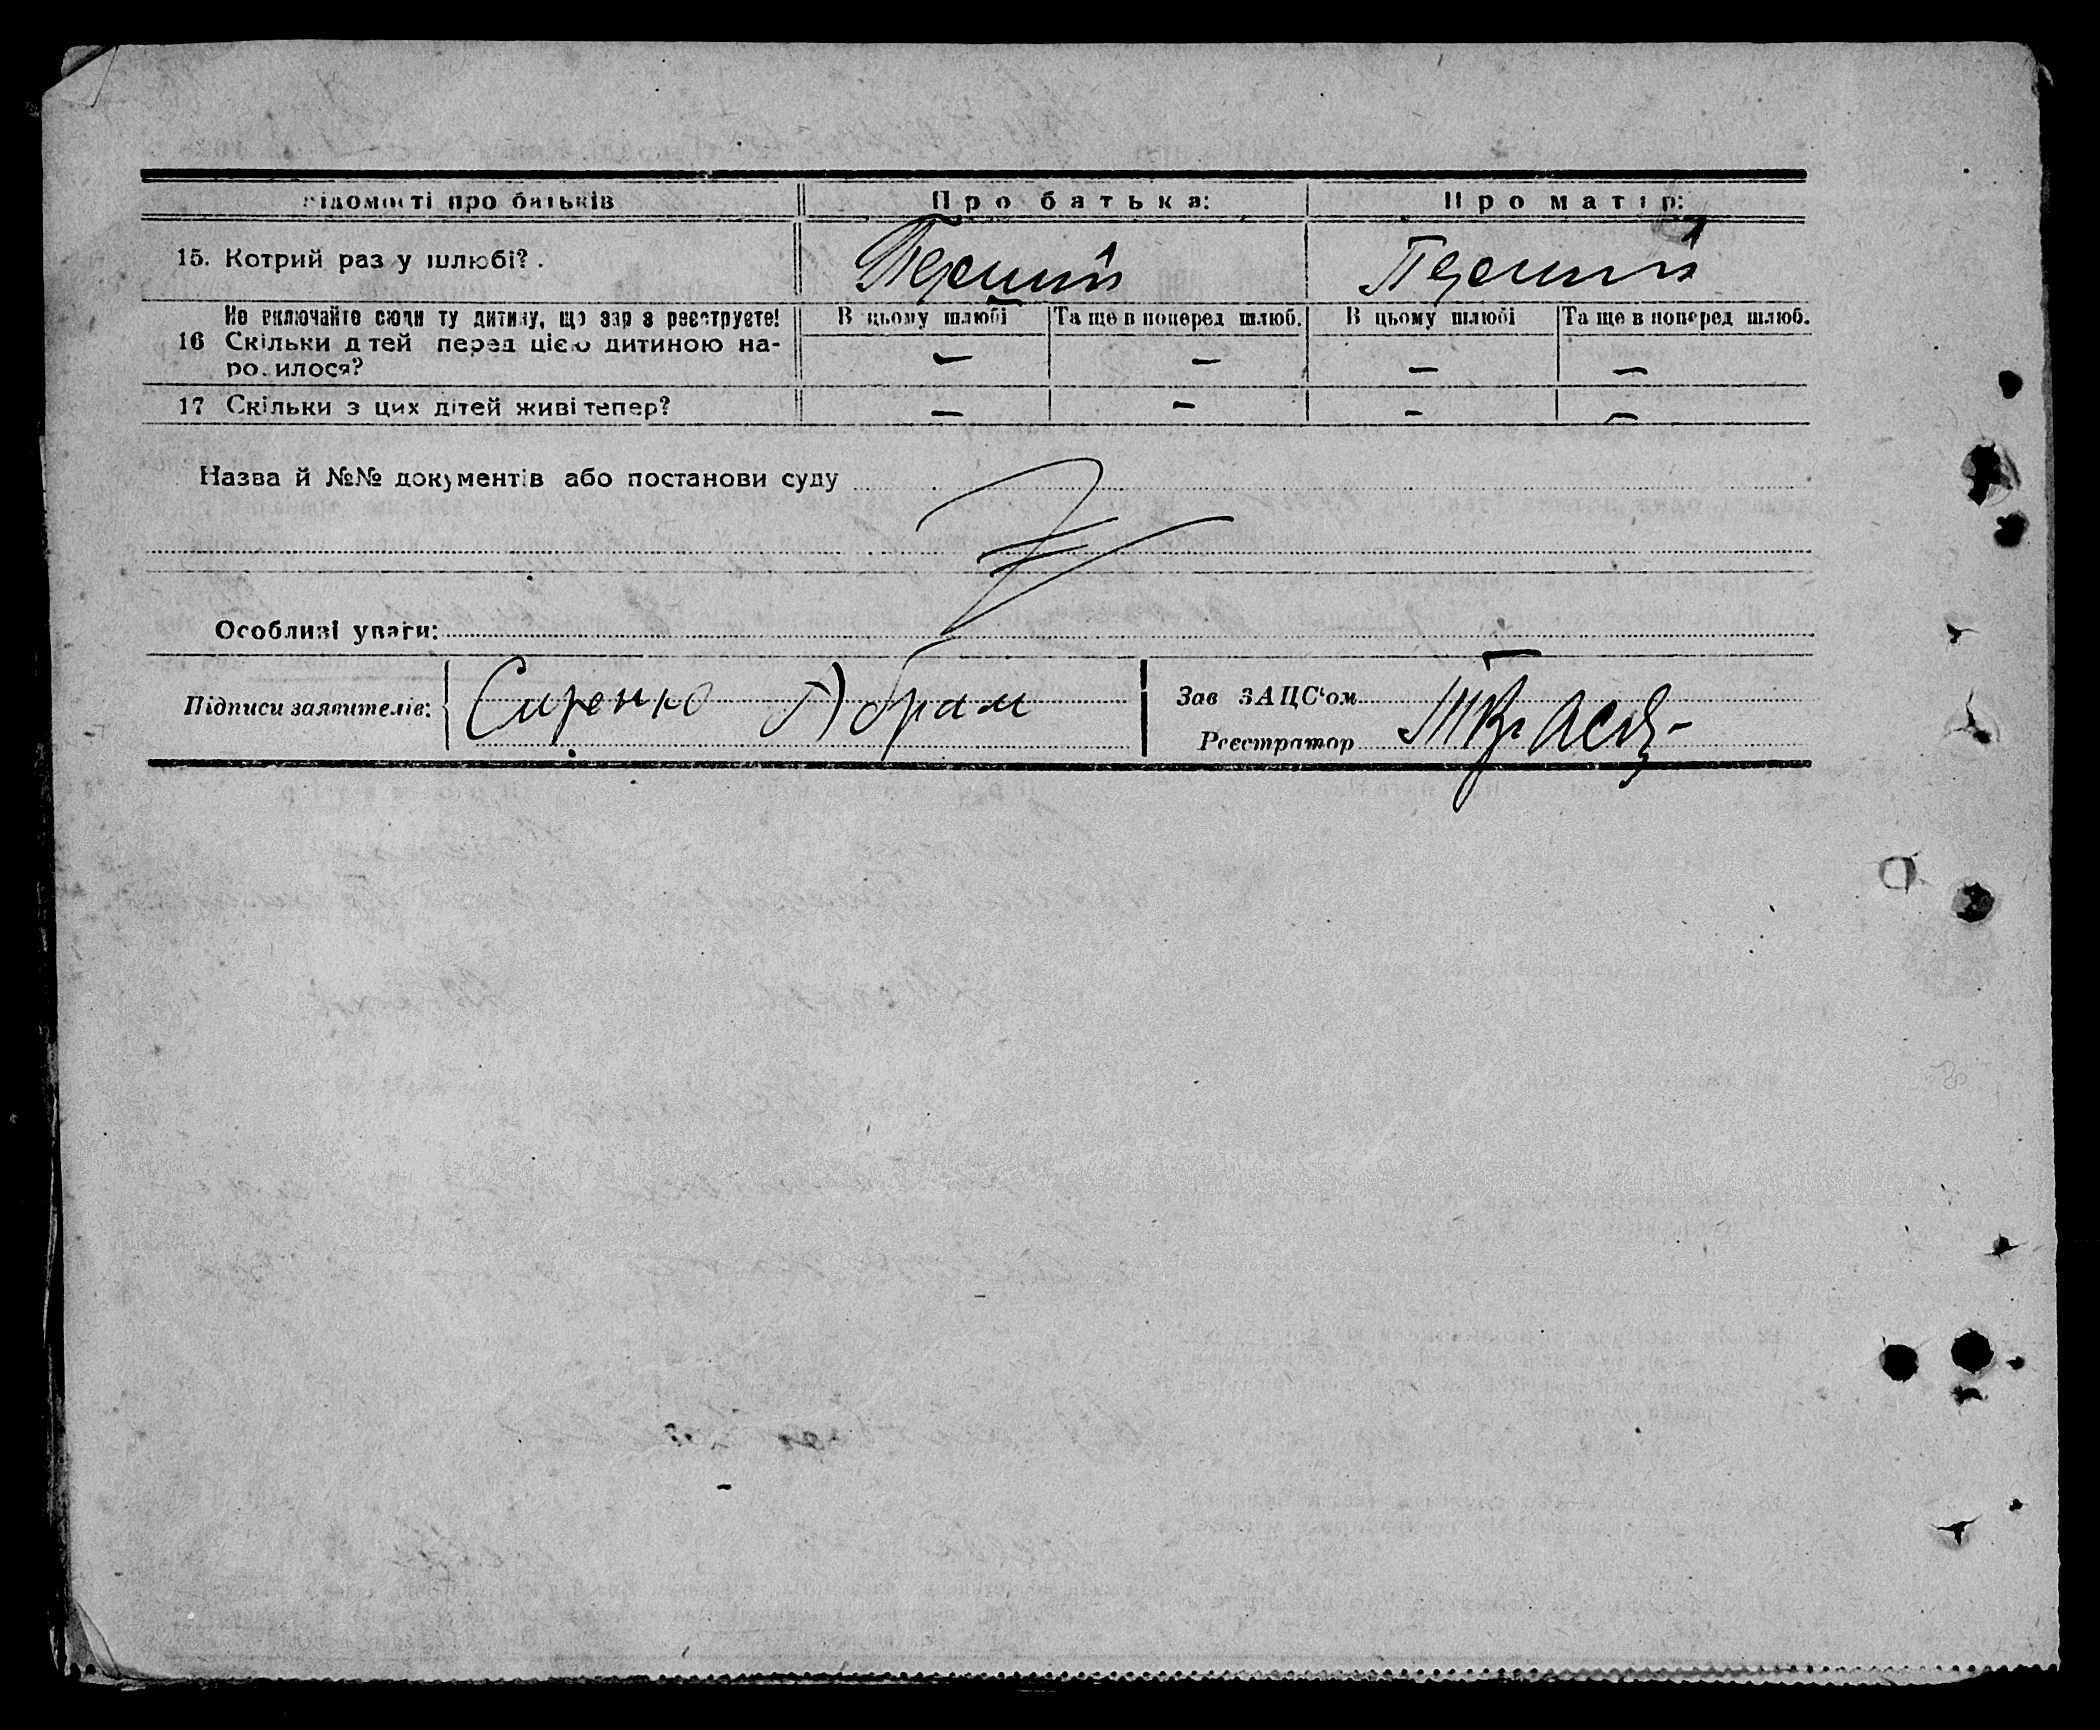 Відомості про батьків Про батька: Про матір:
15. Котрий раз у шлюбі? . Перший Перший
Не включайте сюди ту дитину, що зар з реєструєте! В цьому шлюбі Та ще в поперед шлюб. В цьому шлюбі Та ще в поперед шлюб.
16 Скільки дтей перед цією дитиною на-
родилося? — — — —
17 Скільки з цих дітей живі тепер? — — — —
Назва й №№ документів або постанови суду
Особливі уваги:
Підписи заявителів: Сиренко Абрам Зав ЗАЦС‘ом
Реєстратор